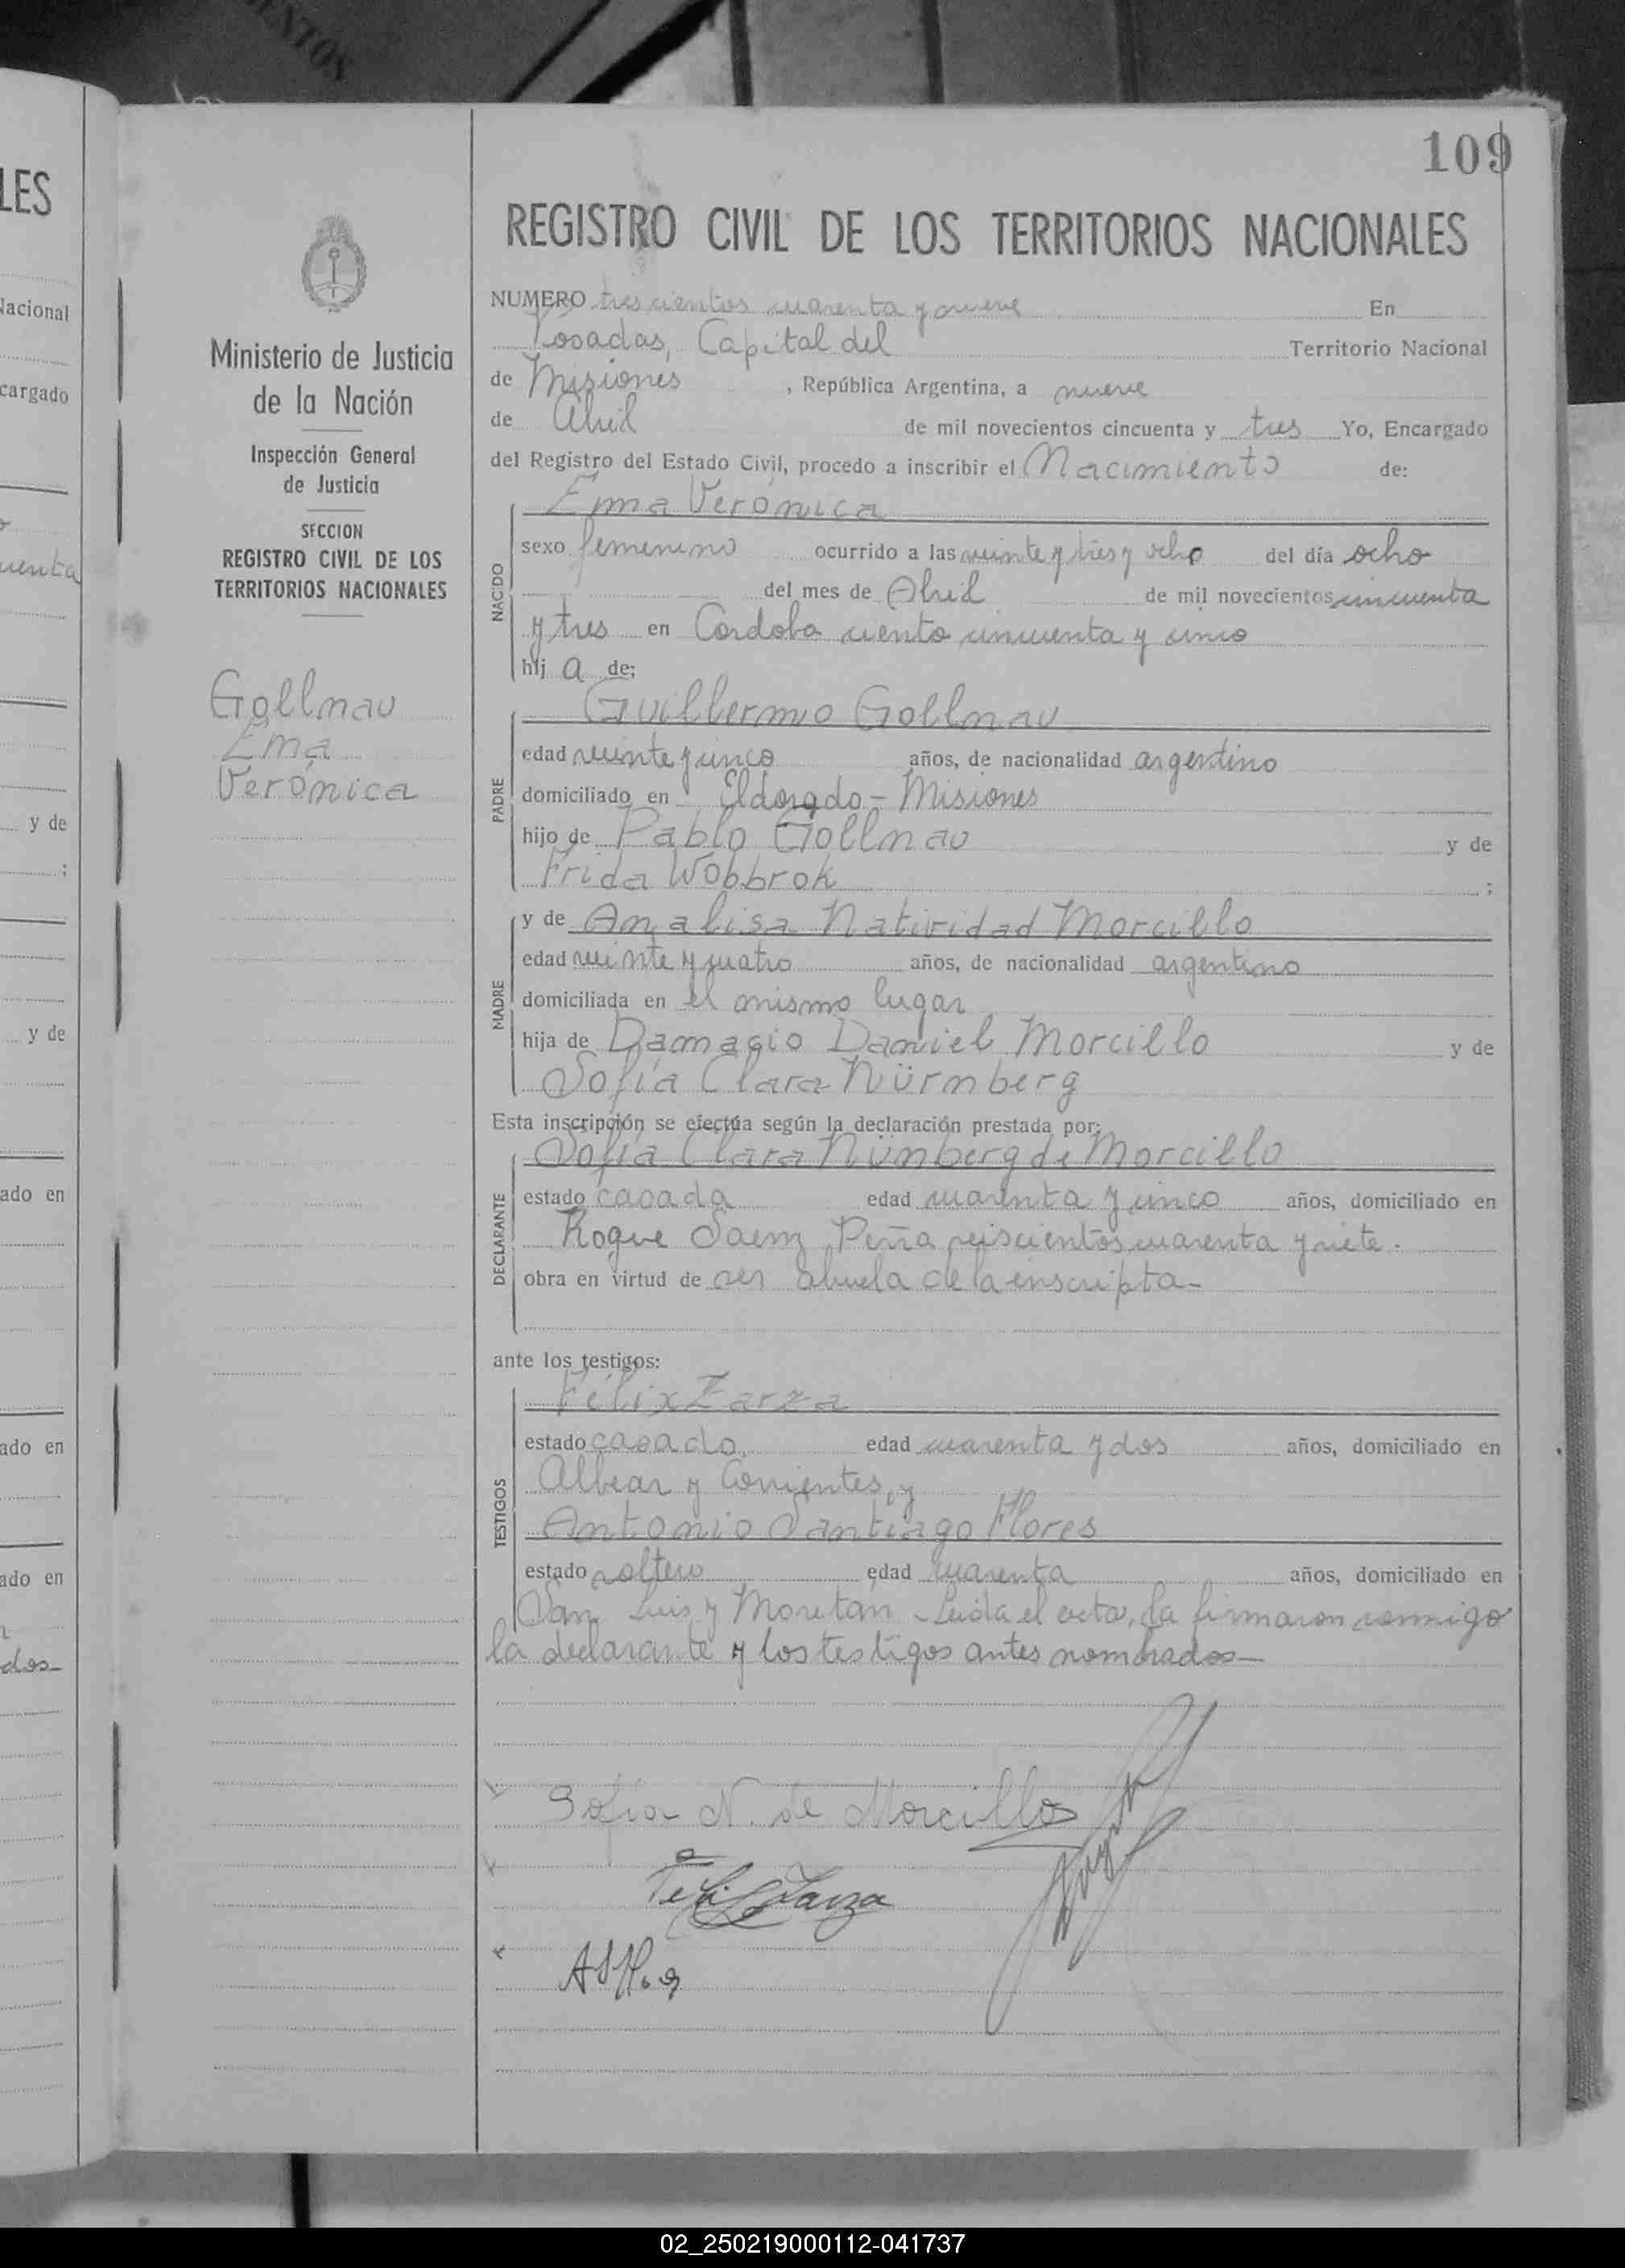 109
REGISTRO CIVIL DE LOS TERRITORIOS NACIONALES
Ministerio de Justicia
de la Nación
Inspección General
de Justicia
SECCION
REGISTRO CIVIL DE LOS
TERRITORIOS NACIONALES
Gollnau
Ema
Verónica
NUMERO trescientos cuarenta y nueve En
Posadas, Capital del Territorio Nacional
de Misiones, República Argentina, a nueve
de Abril de mil novecientos cincuenta y tres Yo, Encargado
del Registro del Estado Civil, procedo a inscribir el Nacimiento de:
NACIDO
Ema Verónica
sexo femenino ocurrido a las veinte y tres y ocho del día ocho
del mes de Abril de mil novecientos cincuenta
y tres en Cordoba ciento cincuenta y cinco
hij a de:
PADRE
Guillermo Gollnau
edad veinte y cinco años, de nacionalidad argentino
domiciliado en Eldorado - Misiones
hijo de Pablo Gollnau y de
Frida Wobbrok ;
MADRE
y de Analisa Natividad Morcillo
edad veinte y cuatro años, de nacionalidad argentino
domiciliada en el mismo lugar
hija de Damasio Daniel Morcillo y de
Sofía Clara Nürnberg
Esta inscripción se efectúa según la declaración prestada por:
DECLARANTE
Sofía Clara Nürnberg de Morcillo
estado casada edad cuarenta y cinco años, domiciliado en
Roque Saenz Peña seiscientos cuarenta y siete.
obra en virtud de ser abuela de la inscripta-
ante los testigos:
TESTIGOS
Félix Zarza
estado casado, edad cuarenta y dos años, domiciliado en
Albear y Corrientes, y
Antonio Santiago Flores
estado soltero edad cuarenta años, domiciliado en
San Luis y Moritán - Leída el acta, la firmaron conmigo
la declarante y los testigos antes nombrados-
Sofia N. de Morcillo
Félix Zarza
LES
Nacional
cargado
y de
;
y de
ado en
ado en
ado en
dos-
02_250219000112-041737